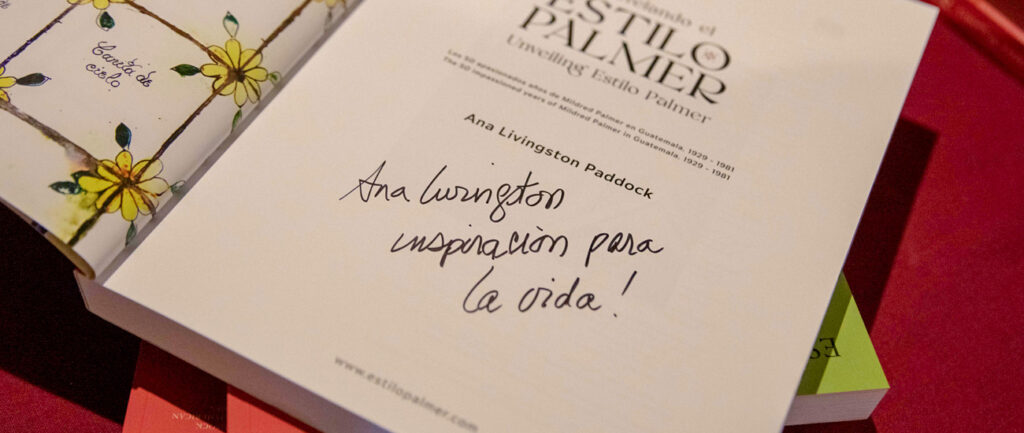 Carita de
cielo!
elando el
ESTILO
PALMER
Unveiling Estilo Palmer
Los 50 apasionados años de Mildred Palmer en Guatemala, 1929 - 1981
The 50 impassioned years of Mildred Palmer in Guatemala, 1929 - 1981
Ana Livingston Paddock
Ana Livingston
inspiración para
la vida!
www.estilopalmer.com
ES